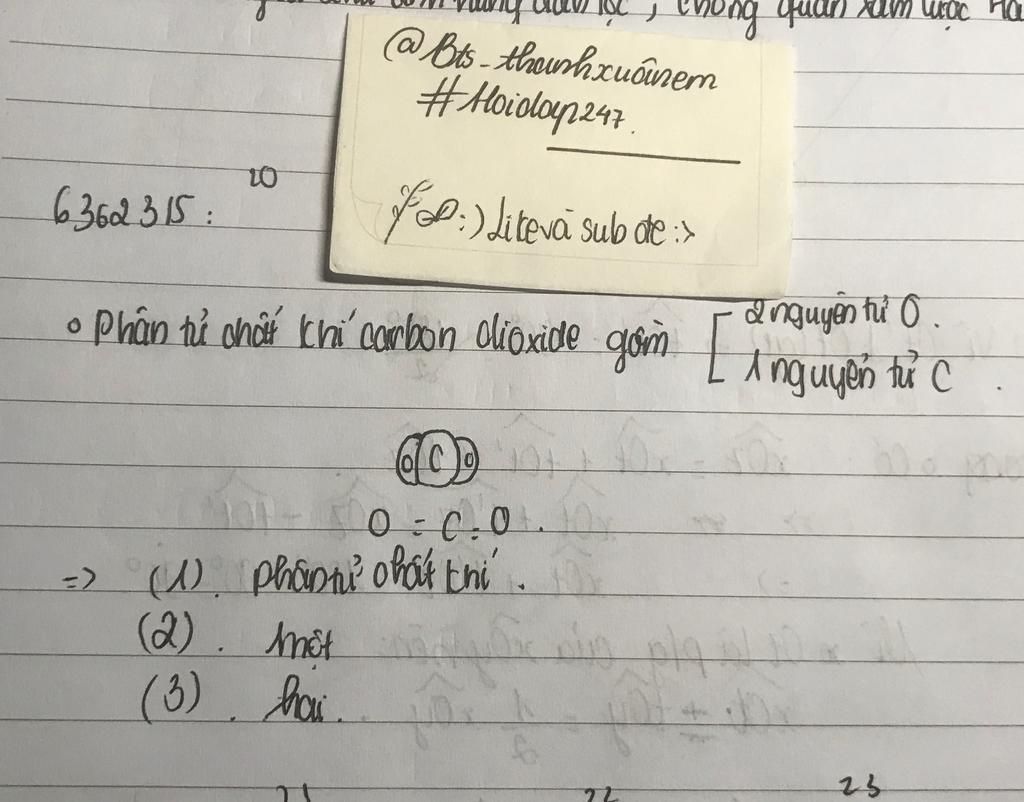 chống quân xâm lược
@Bts_thanhxuânem
#Hoidap247.
20
6362315:
:) Like và sub de :>
• Phân tử chất khí carbon dioxide gồm [ 2 nguyên tử O.
1 nguyên tử C.
O C O
O = C = O.
=> (1). Phân tử chất khí.
(2). một
(3). hai.
21 22 23